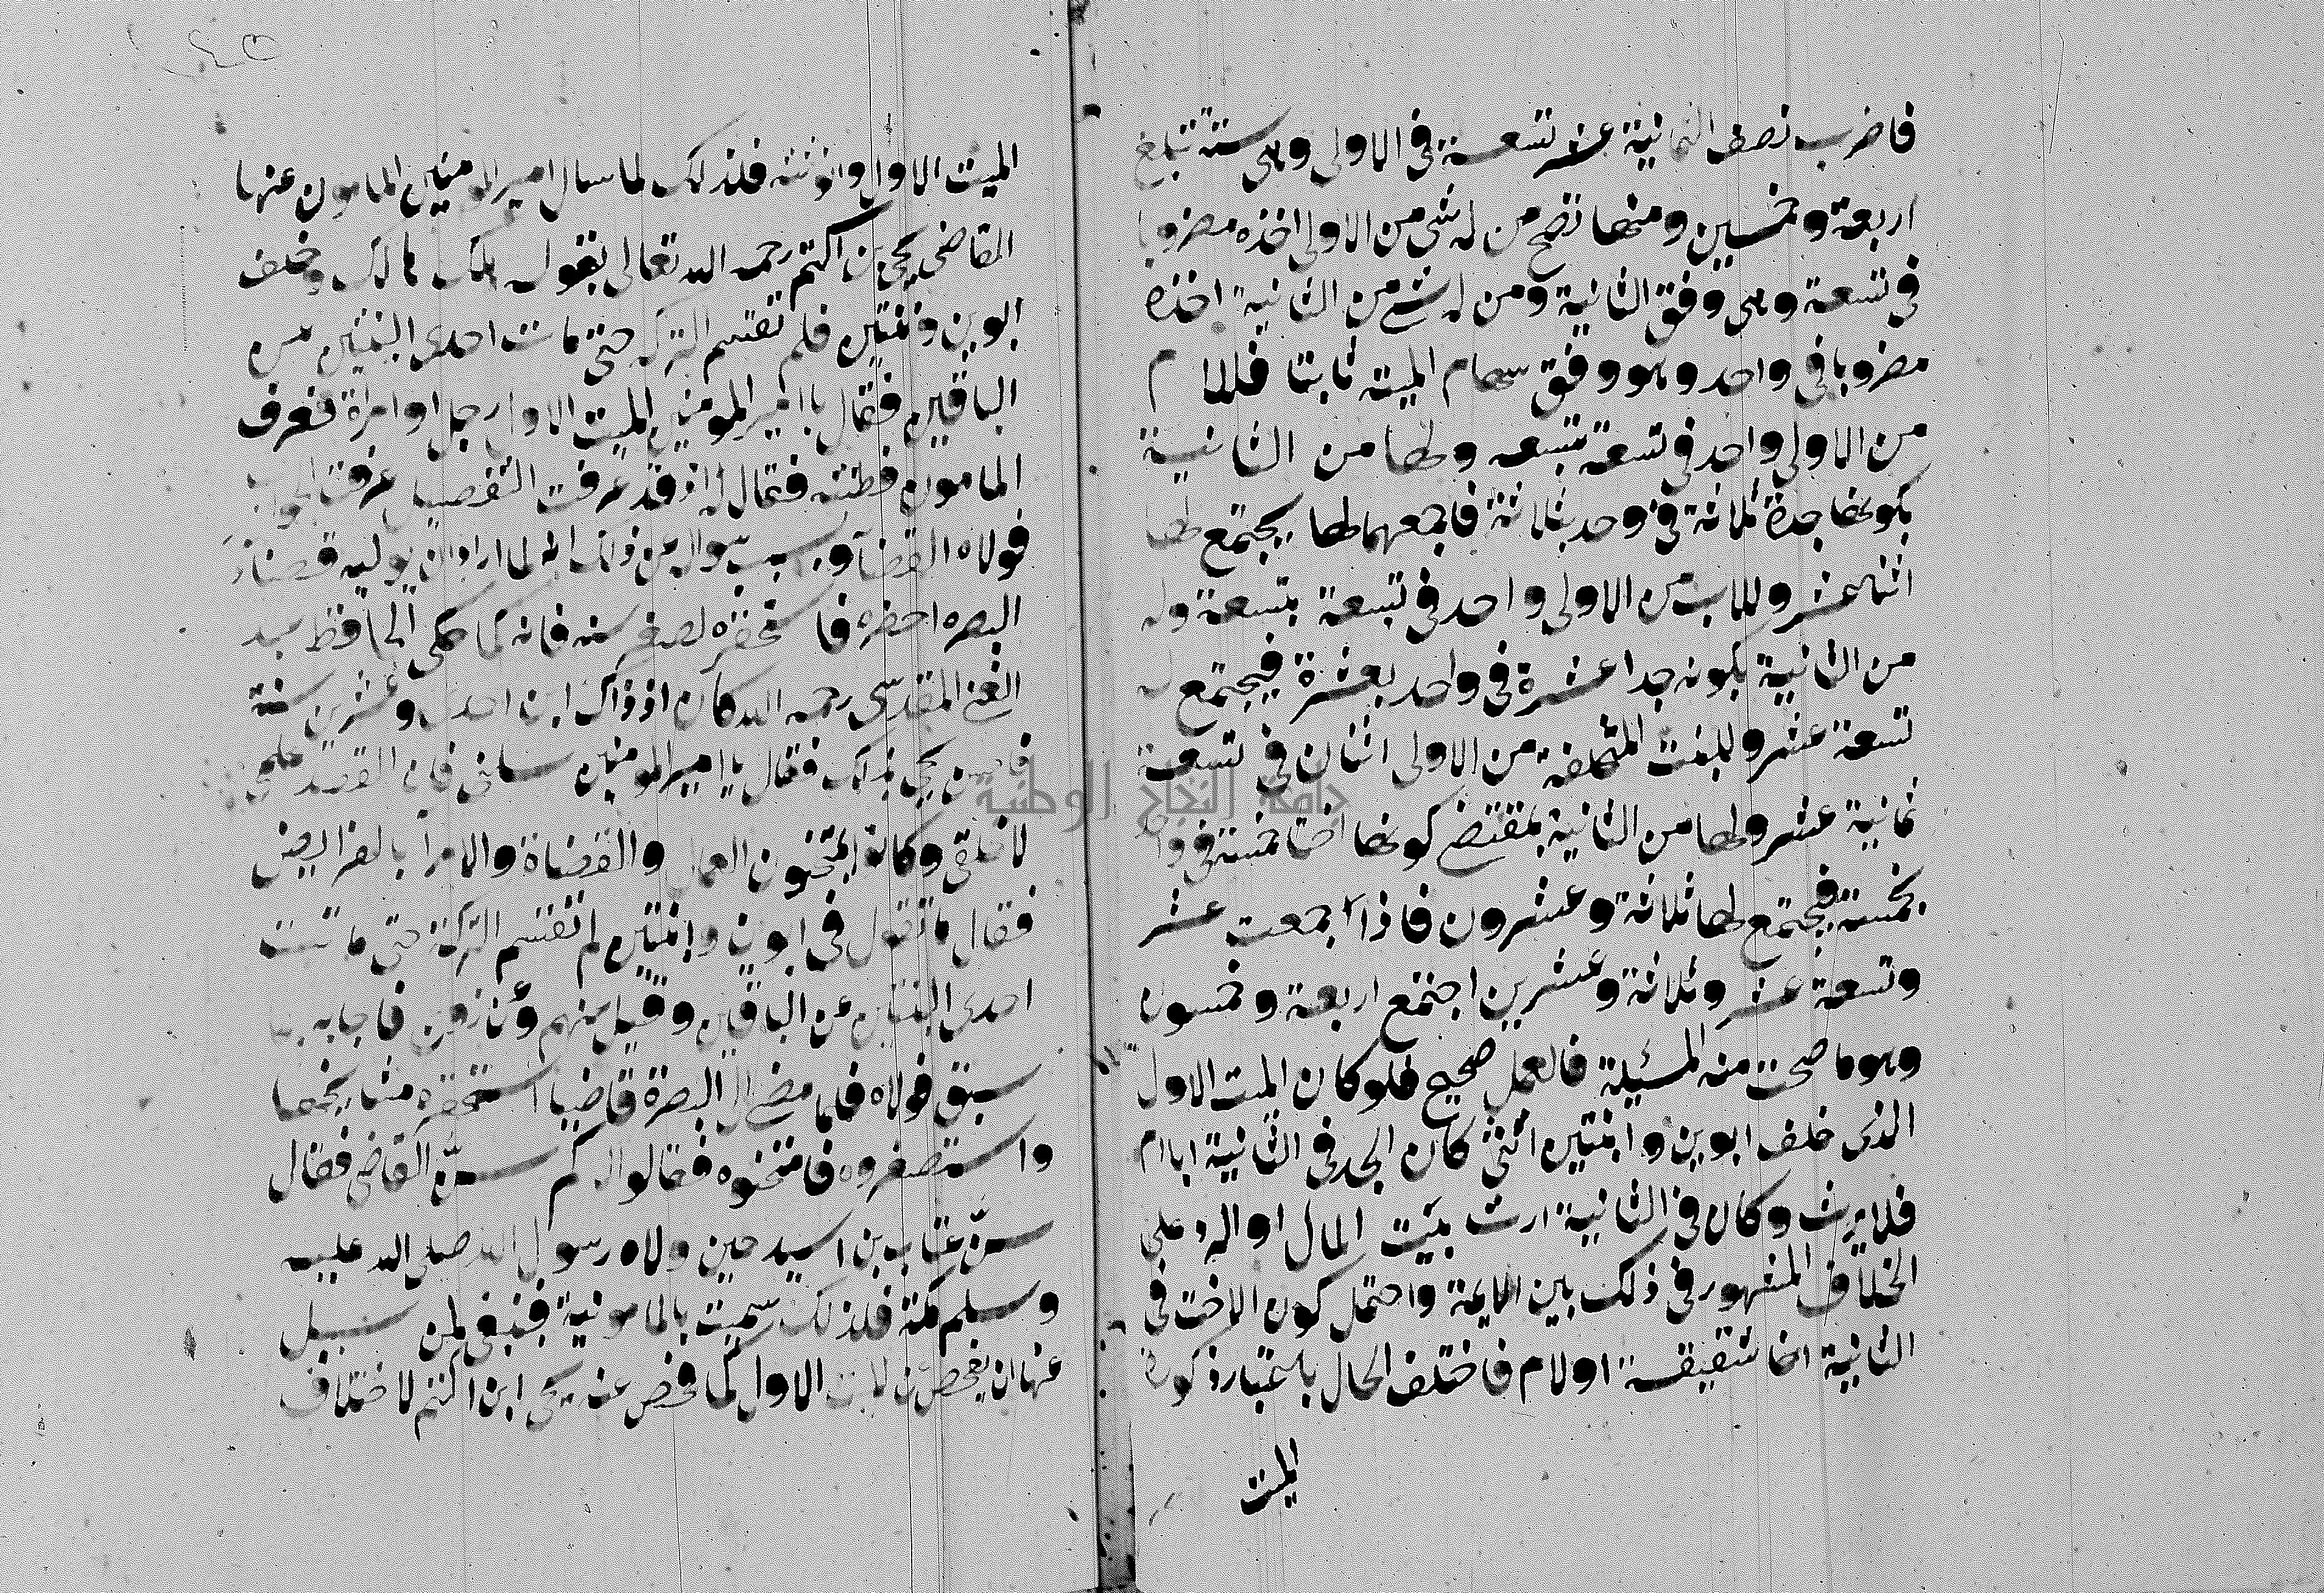 فاضرب نصف الثمانية عشر تسعة في الاولى وهى ستة تبلغ
اربعة وخمسين ومنها تصح من له شى من الاولى اخذه مضروبا
في تسعة وهى وفق الثانية ومن له شي من الثانية اخذه
مضروبا في واحد وهو وفق سهام الميتة ثابتا فللام
من الاولى واحد في تسعة بتسعه ولها من الثانية
بكونها جدة ثلاثة في وحد بثلاثة فاجمعهما لها يجتمع لها
اثنا عشر وللاب من الاولى واحد في تسعة بتسعة وله
من الثانية بكونه جدا عشرة في واحد بعشرة فيجتمع له
تسعة عشر وللبنت المتخلفة من الاولى اثنان في تسعة
ثمانية عشر ولها من الثانية بمقتضى كونها اختا خمسة في
بخمسة فيجتمع لها ثلاثة وعشرون فاذا اجمعت عشر
وتسعة عشر وثلاثة وعشرين اجتمع اربعة وخمسون
وهو ما صحت منه المسئلة فالعمل صحيح فلو كان الميت الاول
الذى خلف ابوين وابنتين انثى كان الجد في الثانية ابا ام
فلا يرث وكان في الثانية ارث بيت المال او الرد على
الخلاف المشهور في ذلك بين الايمة واحتمل كون الاخت في
الثانية اختا شقيقة او لام فاختلف الحال باعتبار ذكورة
الميت
١٤٥
الميت الاول وانوثته فلذلك لما سال امير المومنين المامون عنها
القاضي يحيى بن اكثم رحمه الله تعالى بقول هلك هالك وخلف
ابوين وابنتين فلم تقتسم التركه حتى مات احدى البنتين عن
الباقين فقال يا امير المومنين الميت الاول رجل او امراة فعرف
المامون فطنته فقال له اذ قد عرفت التفصيل عرفت الجواب
فولاه القضا وسبب سواله عن ذلك انه لما اراد ان يوليه قضاء
البصره احضره فاستحقره لصغر سنه فانه كما حكى الحافظ عبد
الغني المقدسى رحمه الله كان اذ ذاك ابن احدى وعشرين سنة
يحيى بذلك فقال يا امير المومنين سلنى فان القصد علمي
لا خلقي وكانوا يمتحنون العمال والقضاة والامرا بالفرايض
فقال ما تقول في ابوين وابنتين لم تقتسم التركة حتى ماتت
احدى البنتين عن الباقين وقيل منهم وعن زوج فاجابه بما
سبق فولاه فلما مضى الى البصرة قاضيا استحقره مشايخها
واستصغروه فامتحنوه فقالوا له كم سن القاضى فقال
سن عتاب بن اسيد حين ولاه رسول الله صلى الله عليه
وسلم مكة فلذلك سميت بالمامونية فينبغى لمن سيل
عنها ان يفحص عن الميت الاول كما فحص عنه يحيى ابن اكثم لاختلاف
جامعة النجاح الوطنية